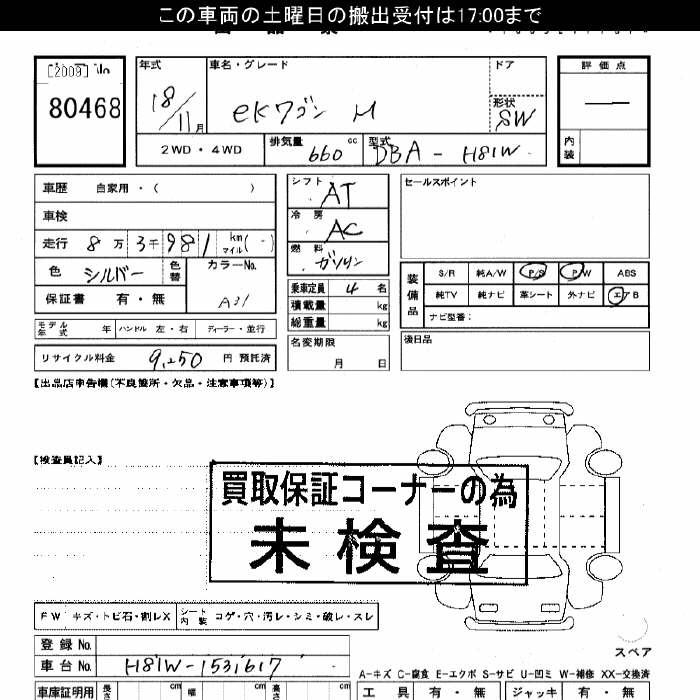 この車両の土曜日の搬出受付は17:00まで
[2009]
80468
年式
18/11月
車名・グレード
eKワゴン M
ドア
形状
SW
評価点
内装
2WD・4WD
排気量
660 cc
型式
DBA - H81W
車歴 自家用・( )
車検
走行 8万3千981 km マイル(-)
色 シルバー 色替
カラーNo.
A31
保証書 有・無
モデル年式 年 ハンドル 左・右 ディーラー・並行
リサイクル料金 9,250 円 預託済
シフト AT
冷房 AC
燃料 ガソリン
乗車定員 4 名
積載量 kg
総重量 kg
名変期限
月 日
セールスポイント
装備品
S/R 純A/W P/S P/W ABS
純TV 純ナビ 革シート 外ナビ エアB
ナビ型番:
後日品
【出品店申告欄(不良箇所・欠品・注意事項等)】
【検査員記入】
買取保証コーナーの為
未検査
FW キズ・トビ石・割レX
シート内装 コゲ・穴・汚レ・シミ・破レ・スレ
登録No.
車台No. H81W-1531617
スペア
A-キズ C-腐食 E-エクボ S-サビ U-凹ミ W-補修 XX-交換済
車庫証明用 長さ cm 幅 cm 高さ cm
工具 有・無 ジャッキ 有・無